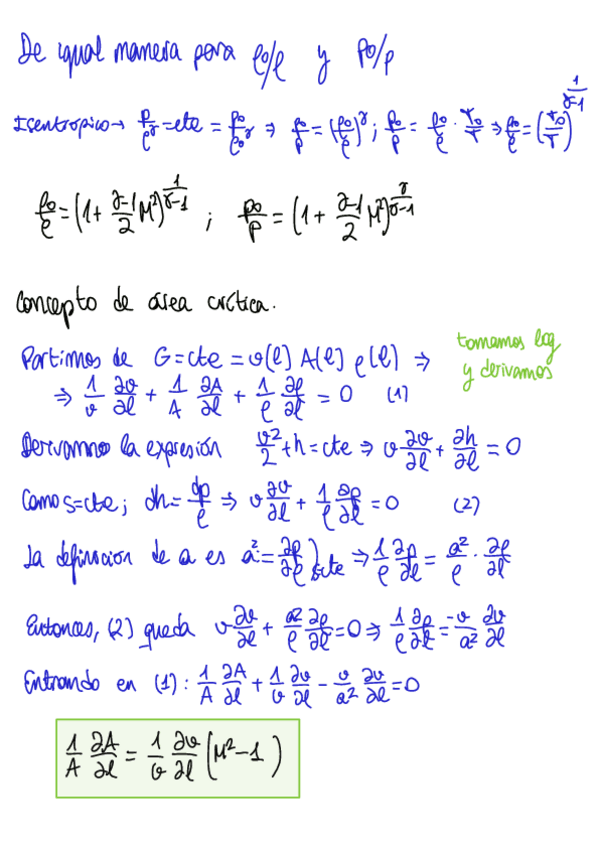 De igual manera para ρ0/ρ y P0/P
Isentrópico → P/ρ^γ = cte = P0/ρ0^γ ⇒ P0/P = (ρ0/ρ)^γ ; P0/P = ρ0/ρ · T0/T ⇒ ρ0/ρ = (T0/T)^(1/(γ-1))
ρ0/ρ = (1 + (γ-1)/2 M²)^(1/(γ-1)) ; P0/P = (1 + (γ-1)/2 M²)^(γ/(γ-1))
Concepto de área crítica.
Partimos de G = cte = v(l) A(l) ρ(l) ⇒ tomamos log
y derivamos
⇒ 1/v ∂v/∂l + 1/A ∂A/∂l + 1/ρ ∂ρ/∂l = 0 (1)
Derivamos la expresión v²/2 + h = cte ⇒ v ∂v/∂l + ∂h/∂l = 0
Como s=cte; dh = dp/ρ ⇒ v ∂v/∂l + 1/ρ ∂p/∂l = 0 (2)
La definición de a es a² = ∂p/∂ρ)s cte ⇒ 1/ρ ∂p/∂l = a²/ρ · ∂ρ/∂l
Entonces, (2) queda v ∂v/∂l + a²/ρ ∂ρ/∂l = 0 ⇒ 1/ρ ∂ρ/∂l = -v/a² ∂v/∂l
Entrando en (1): 1/A ∂A/∂l + 1/v ∂v/∂l - v/a² ∂v/∂l = 0
1/A ∂A/∂l = 1/v ∂v/∂l (M² - 1)